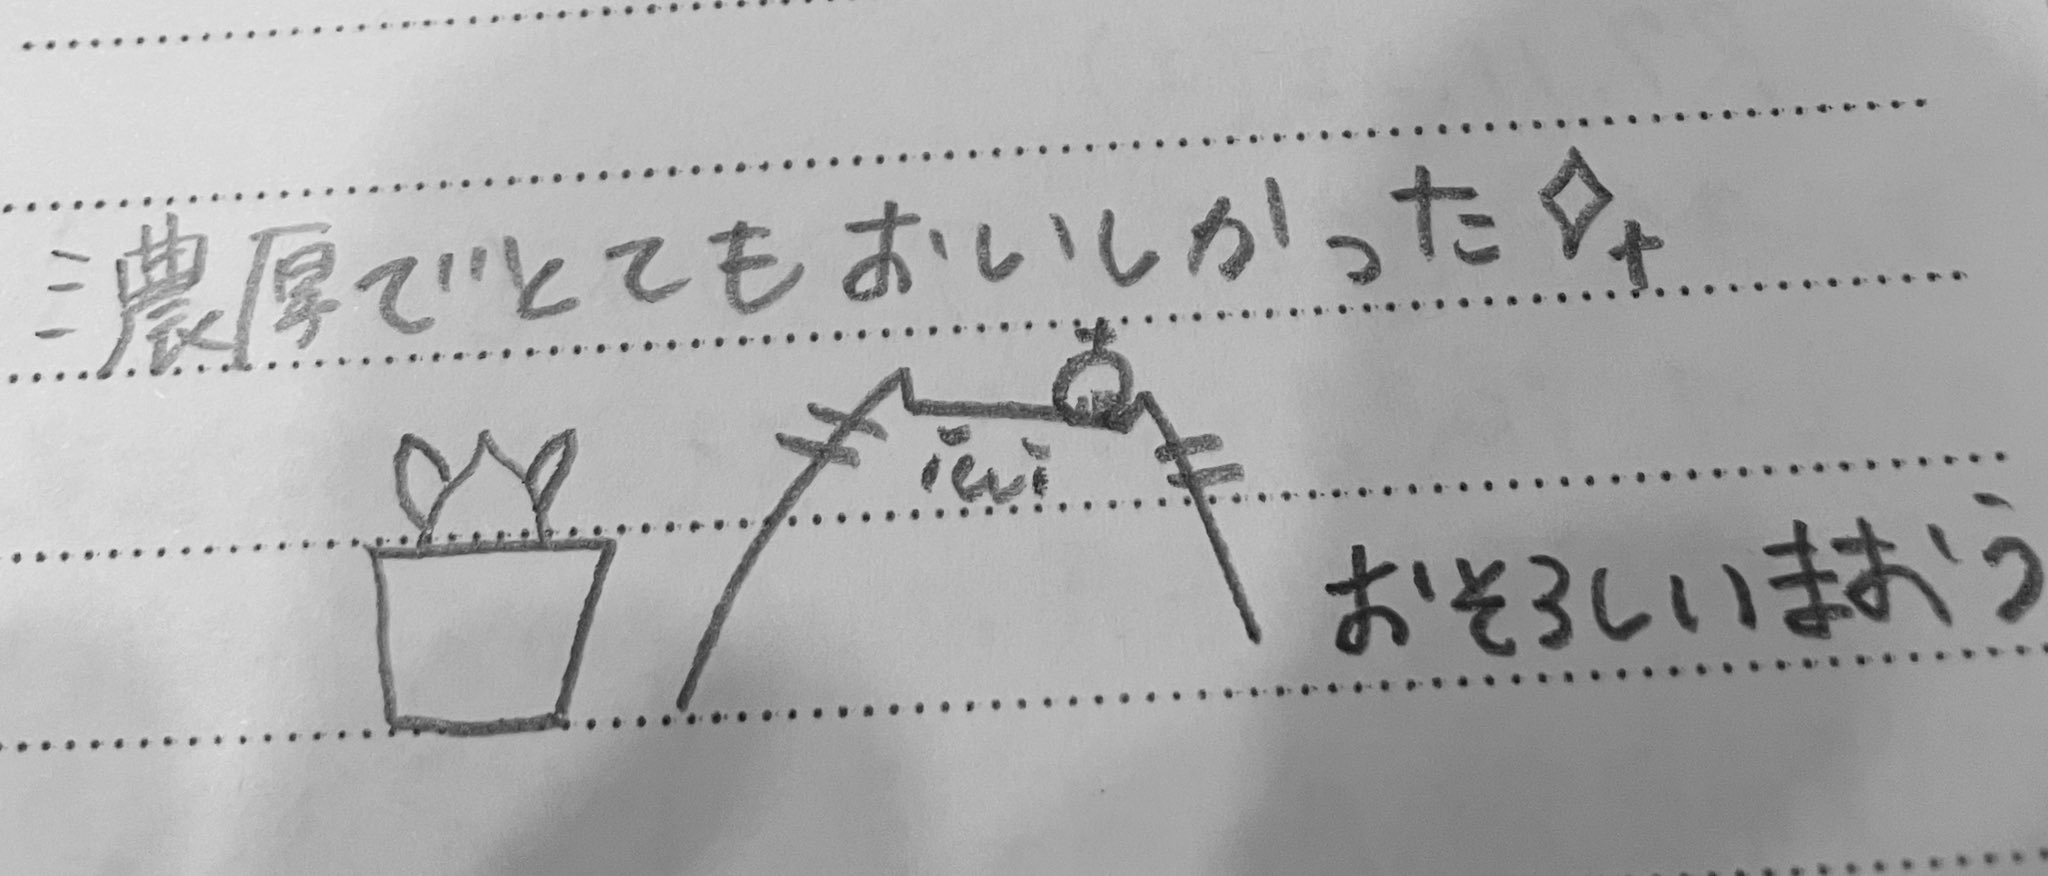 濃厚でとてもおいしかった
おそろしいまおう